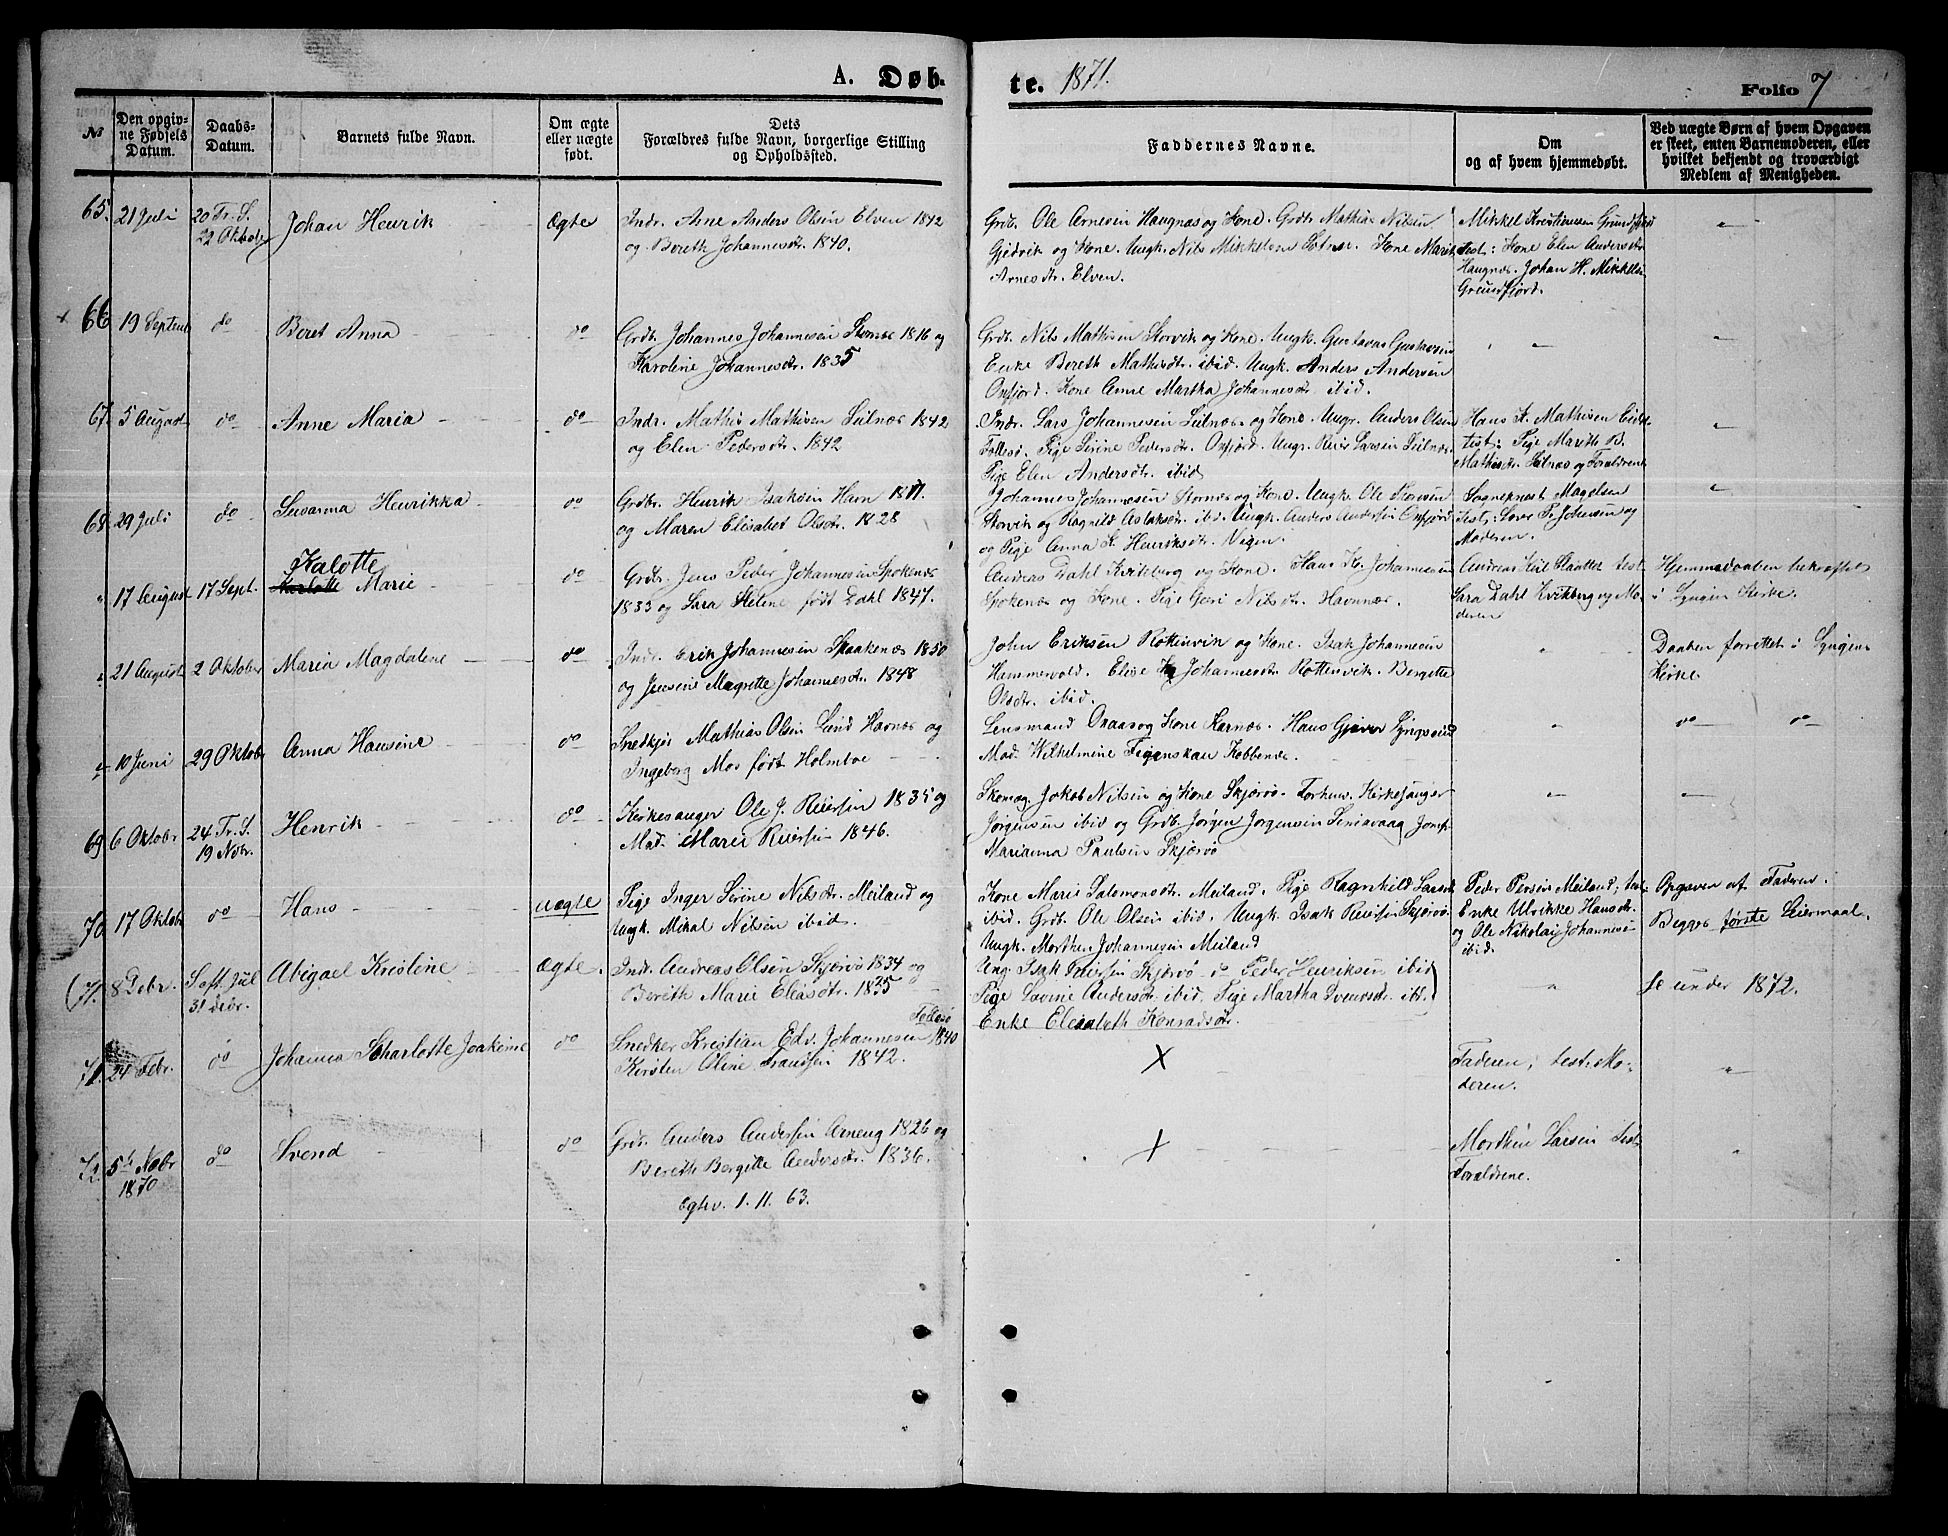 A. Døb-
te. 1871.
Folio 7
№
Den opgiv-
ne Fødsels
Datum.
Daabs-
Datum.
Barnets fulde Navn.
Om ægte
eller uægte
født.
Dets
Forældres fulde Navn, borgerlige Stilling
og Opholdssted.
Faddernes Navne.
Om
og af hvem hjemmedøbt.
Ved uægte Børn af hvem Opgaven
er skeet, enten Barnemoderen, eller
hvilket bekjendt og troværdigt
Medlem af Menigheden.
65. 21 Juli
20 Tr. S.
22 Oktober
Johan Henrik
Ægte
Indr. Arne Anders Olsen Elven 1842
og Bereth Johannesdtr. 1840.
Grdb. Ole Arnesen Haugnæs og Kone. Grdb. Mathis Nilsen
Gjøvik og Kone. Ungk. Nils Mikkelsen . Kone Marit
Arnesdtr. Elven.
Mikkel Kristiansen Grundfjord
test: Kone Elen Andersdtr.
Haugnæs. Johan H. Mikkels.
Grundfjord.
"
66 19 Septemb
do
Beret Anna
do
Grdb. Johannes Johannesen Stornæs 1816 og
Karoline Johannesdtr. 1835
Grdb. Nils Mathisen Storvik og Kone. Ungk. Gustavas Gustavsen
Enke Bereth Mathisdtr. ibid. Ungk. Anders Andersen
Oxfjord. Kone Anne Martha Johannesdtr ibid.
"
"
67. 5 August
do
Anne Maria
do
Indr. Mathis Mathisen Lilnæs 1842
og Elen Pedersdtr. 1842
Indr. Lars Johannesen Lilnæs og Kone. Ungk. Anders Olsen
Follesø. Pige Serine Pedersdtr. Oxfjord. Ungk. Reier Larsen Lilnæs
Pige Elen Andersdtr. ibid
Hans K. Mathisen
test: Pige Marith B.
Mathisdtr. Lilnæs og Forældrene
"
68. 29 Juli
do
Susanna Henrikka
do
Grdbr. Henrik Isaksen Havn 1817.
og Maren Elisabet Olsdtr. 1828
Johannes Johannesen Stornæs og Kone. Ungk. Ole
Storvik og Ragnild Aslaksdtr. ibid. Ungk. Anders Andersen Oxfjord
og Pige Anna K. Henriksdtr. .
Sogneprest Magelsen
test: P. Johnsen og
Moderen.
"
" 17 August
17 Sept.
Kalotte
Karlotte Marie
do
Grdb. Jens Peder Johannesen Spokenæs
1833 og Sara Helene født Dahl 1847.
Anders Dahl Kviteberg og Kone. Hans H. Johannesen
Spokenæs og Kone. Pige Guri Nilsdtr. Havnnæs.
Andreas Keil Slaattet test.
Sara Dahl Kviteberg og Mo-
deren
Hjemmedaaben bekræftet
i Lyngen Kirke.
" 21 August
2 Oktober
Maria Magdalene
do
Indr. Erik Johannesen Spaakenæs 1850
og Jensine Magrette Johannesdtr. 1848
John Eriksen Rottenvik og Kone. Isak Johannesen
Hammervold. Elise Johannesdtr Rottenvik. Bergitte
Olsdtr. ibid.
"
Daaben forrettet i Lyngens
Kirke
" 10 Juni
29 Oktober
Anna Hansine
do
Snedker Mathias Olsen Lund Havnæs og
Ingeberg Mos født Holmboe
Lensmand og Kone Karnæs. Hans Gjæver Lyngseid
Mad. Wilhelmine Figenskau Kobbenæs.
"
do do
69. 6 Oktobr
24 Tr. S.
19 Nobr.
Henrik
do
Kirkesanger Ole J. Reiersen 1835 og
Mad. Marie Reiersen 1846.
Skomag. Jakob Nilsen og Kone Skjærvø. Forhenv. Kirkesanger
Jørgensen ibid og Grdb. Jørgen Jørgensen Jomf.
Marianna Paulsen Skjærvø
"
"
70 17 Oktobr
do
Hans
uægte
Pige Inger Serine Nilsdtr. Meiland og
Ungk. Mikal Nilsen ibid.
Kone Marie Salomonsdtr. Meiland. Pige Ragnhild Larsdtr
ibid. Grdb. Ole Olsen ibid. Ungk. Isak Reiersen Skjærvø
Ungk. Morthen Johannesen Meiland
Peder Persen Meiland; test.
Enke Ulrikke Hansdtr.
og Ole Nikolai Johannesen
ibid.
Opgaven af Faderen.
Begges første Leiermaal
(71. 8 Debr.
S. eft. Jul
31 Debr.
Abigael Kristine
ægte.
Indr. Andreas Olsen Skjærvø 1834 og
Bereth Marie Eliasdtr. 1835
Ung. Isak Reiersen Skjærvø do Peder Henriksen ibid
Pige Lavine Andersdtr. ibid. Pige Martha Svensdtr. ibd.)
Enke Elisabeth Konradsdtr.
"
Se under 1872.
71. 24 Febr.
do
Johanna Scharlotte Joakime
do
Follesø
Snedker Kristian Edv. Johannesen 1840
Kirsten Oline Frandsen 1842.
X
Faderen; test: Mo-
deren.
"
72. 5te Nobr
1870
do
Svend
do
Grdb. Anders Andersen Arneng 1826 og
Bereth Bergitte Andersdtr. 1836.
Egtev. 1. 11. 63.
X
Morthen Larsen test
Forældrene.
"